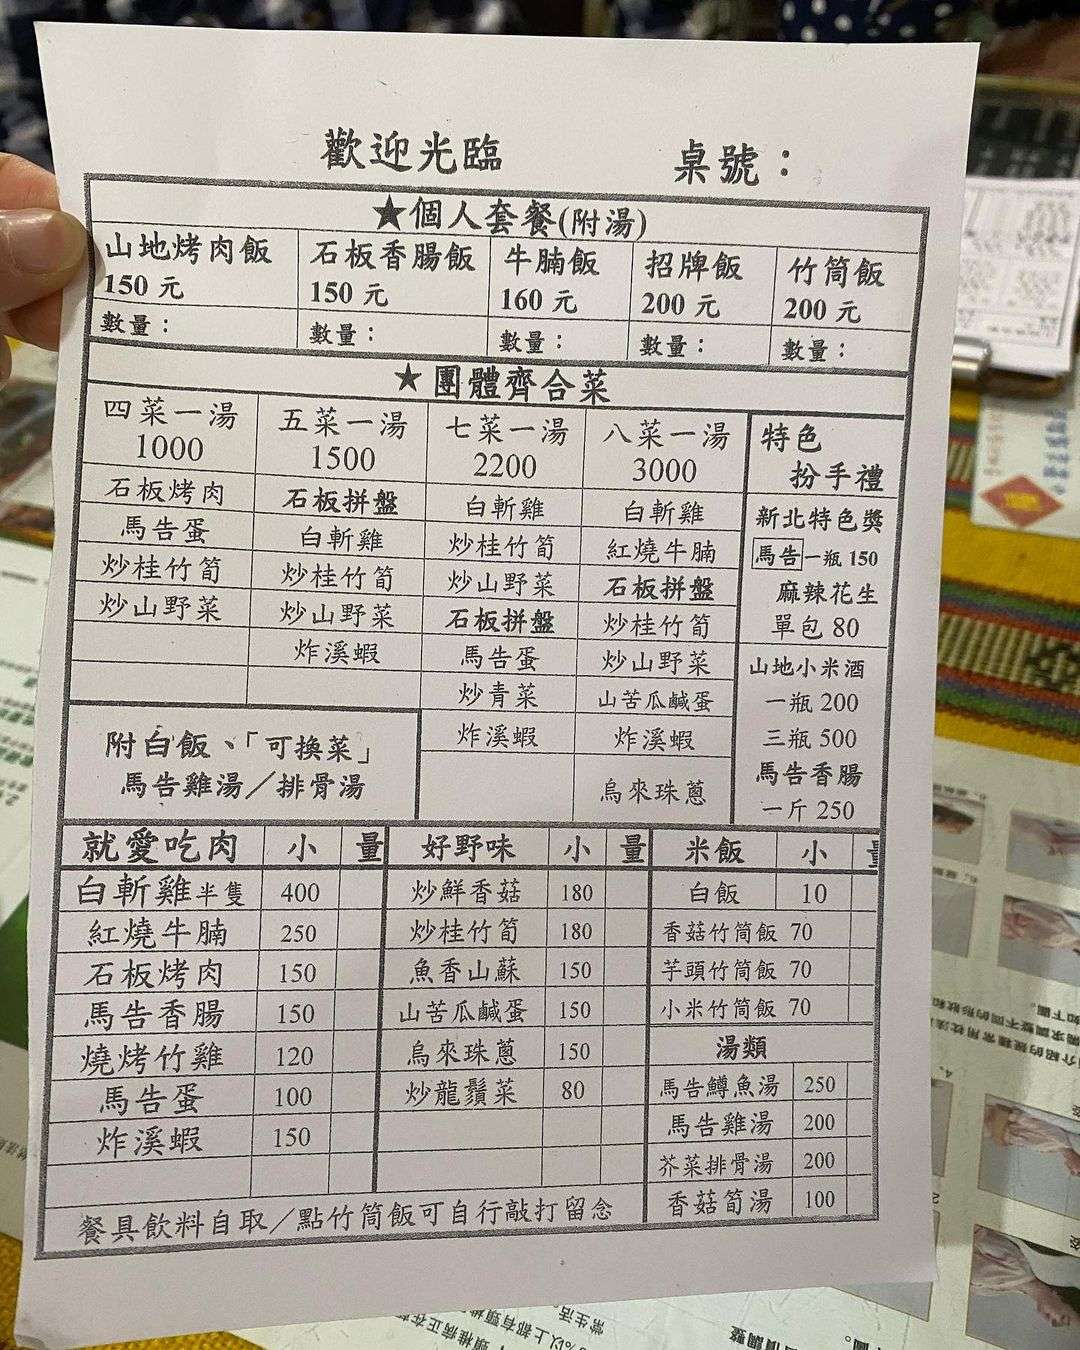 歡迎光臨 桌號：
★個人套餐(附湯)
山地烤肉飯 石板香腸飯 牛腩飯 招牌飯 竹筒飯
150 元 150 元 160 元 200 元 200 元
數量： 數量： 數量： 數量： 數量：
★團體齊合菜
四菜一湯 五菜一湯 七菜一湯 八菜一湯 特色
1000 1500 2200 3000 扮手禮
石板烤肉 石板拼盤 白斬雞 白斬雞 新北特色獎
馬告蛋 白斬雞 炒桂竹筍 紅燒牛腩 馬告一瓶 150
炒桂竹筍 炒桂竹筍 炒山野菜 石板拼盤 麻辣花生
炒山野菜 炒山野菜 石板拼盤 炒桂竹筍 單包 80
炸溪蝦 馬告蛋 炒山野菜 山地小米酒
炒青菜 山苦瓜鹹蛋 一瓶 200
附白飯、「可換菜」 炸溪蝦 炸溪蝦 三瓶 500
馬告雞湯／排骨湯 烏來珠蔥 馬告香腸
一斤 250
就愛吃肉 小 量 好野味 小 量 米飯 小 量
白斬雞半隻 400 炒鮮香菇 180 白飯 10
紅燒牛腩 250 炒桂竹筍 180 香菇竹筒飯 70
石板烤肉 150 魚香山蘇 150 芋頭竹筒飯 70
馬告香腸 150 山苦瓜鹹蛋 150 小米竹筒飯 70
燒烤竹雞 120 烏來珠蔥 150 湯類
馬告蛋 100 炒龍鬚菜 80 馬告鱒魚湯 250
炸溪蝦 150 馬告雞湯 200
芥菜排骨湯 200
香菇筍湯 100
餐具飲料自取／點竹筒飯可自行敲打留念